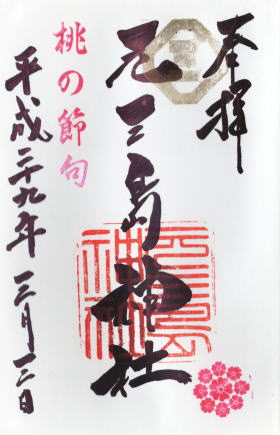 奉拝
三
元三島神社
元三島
神社
桃の節句
平成二十九年三月三日